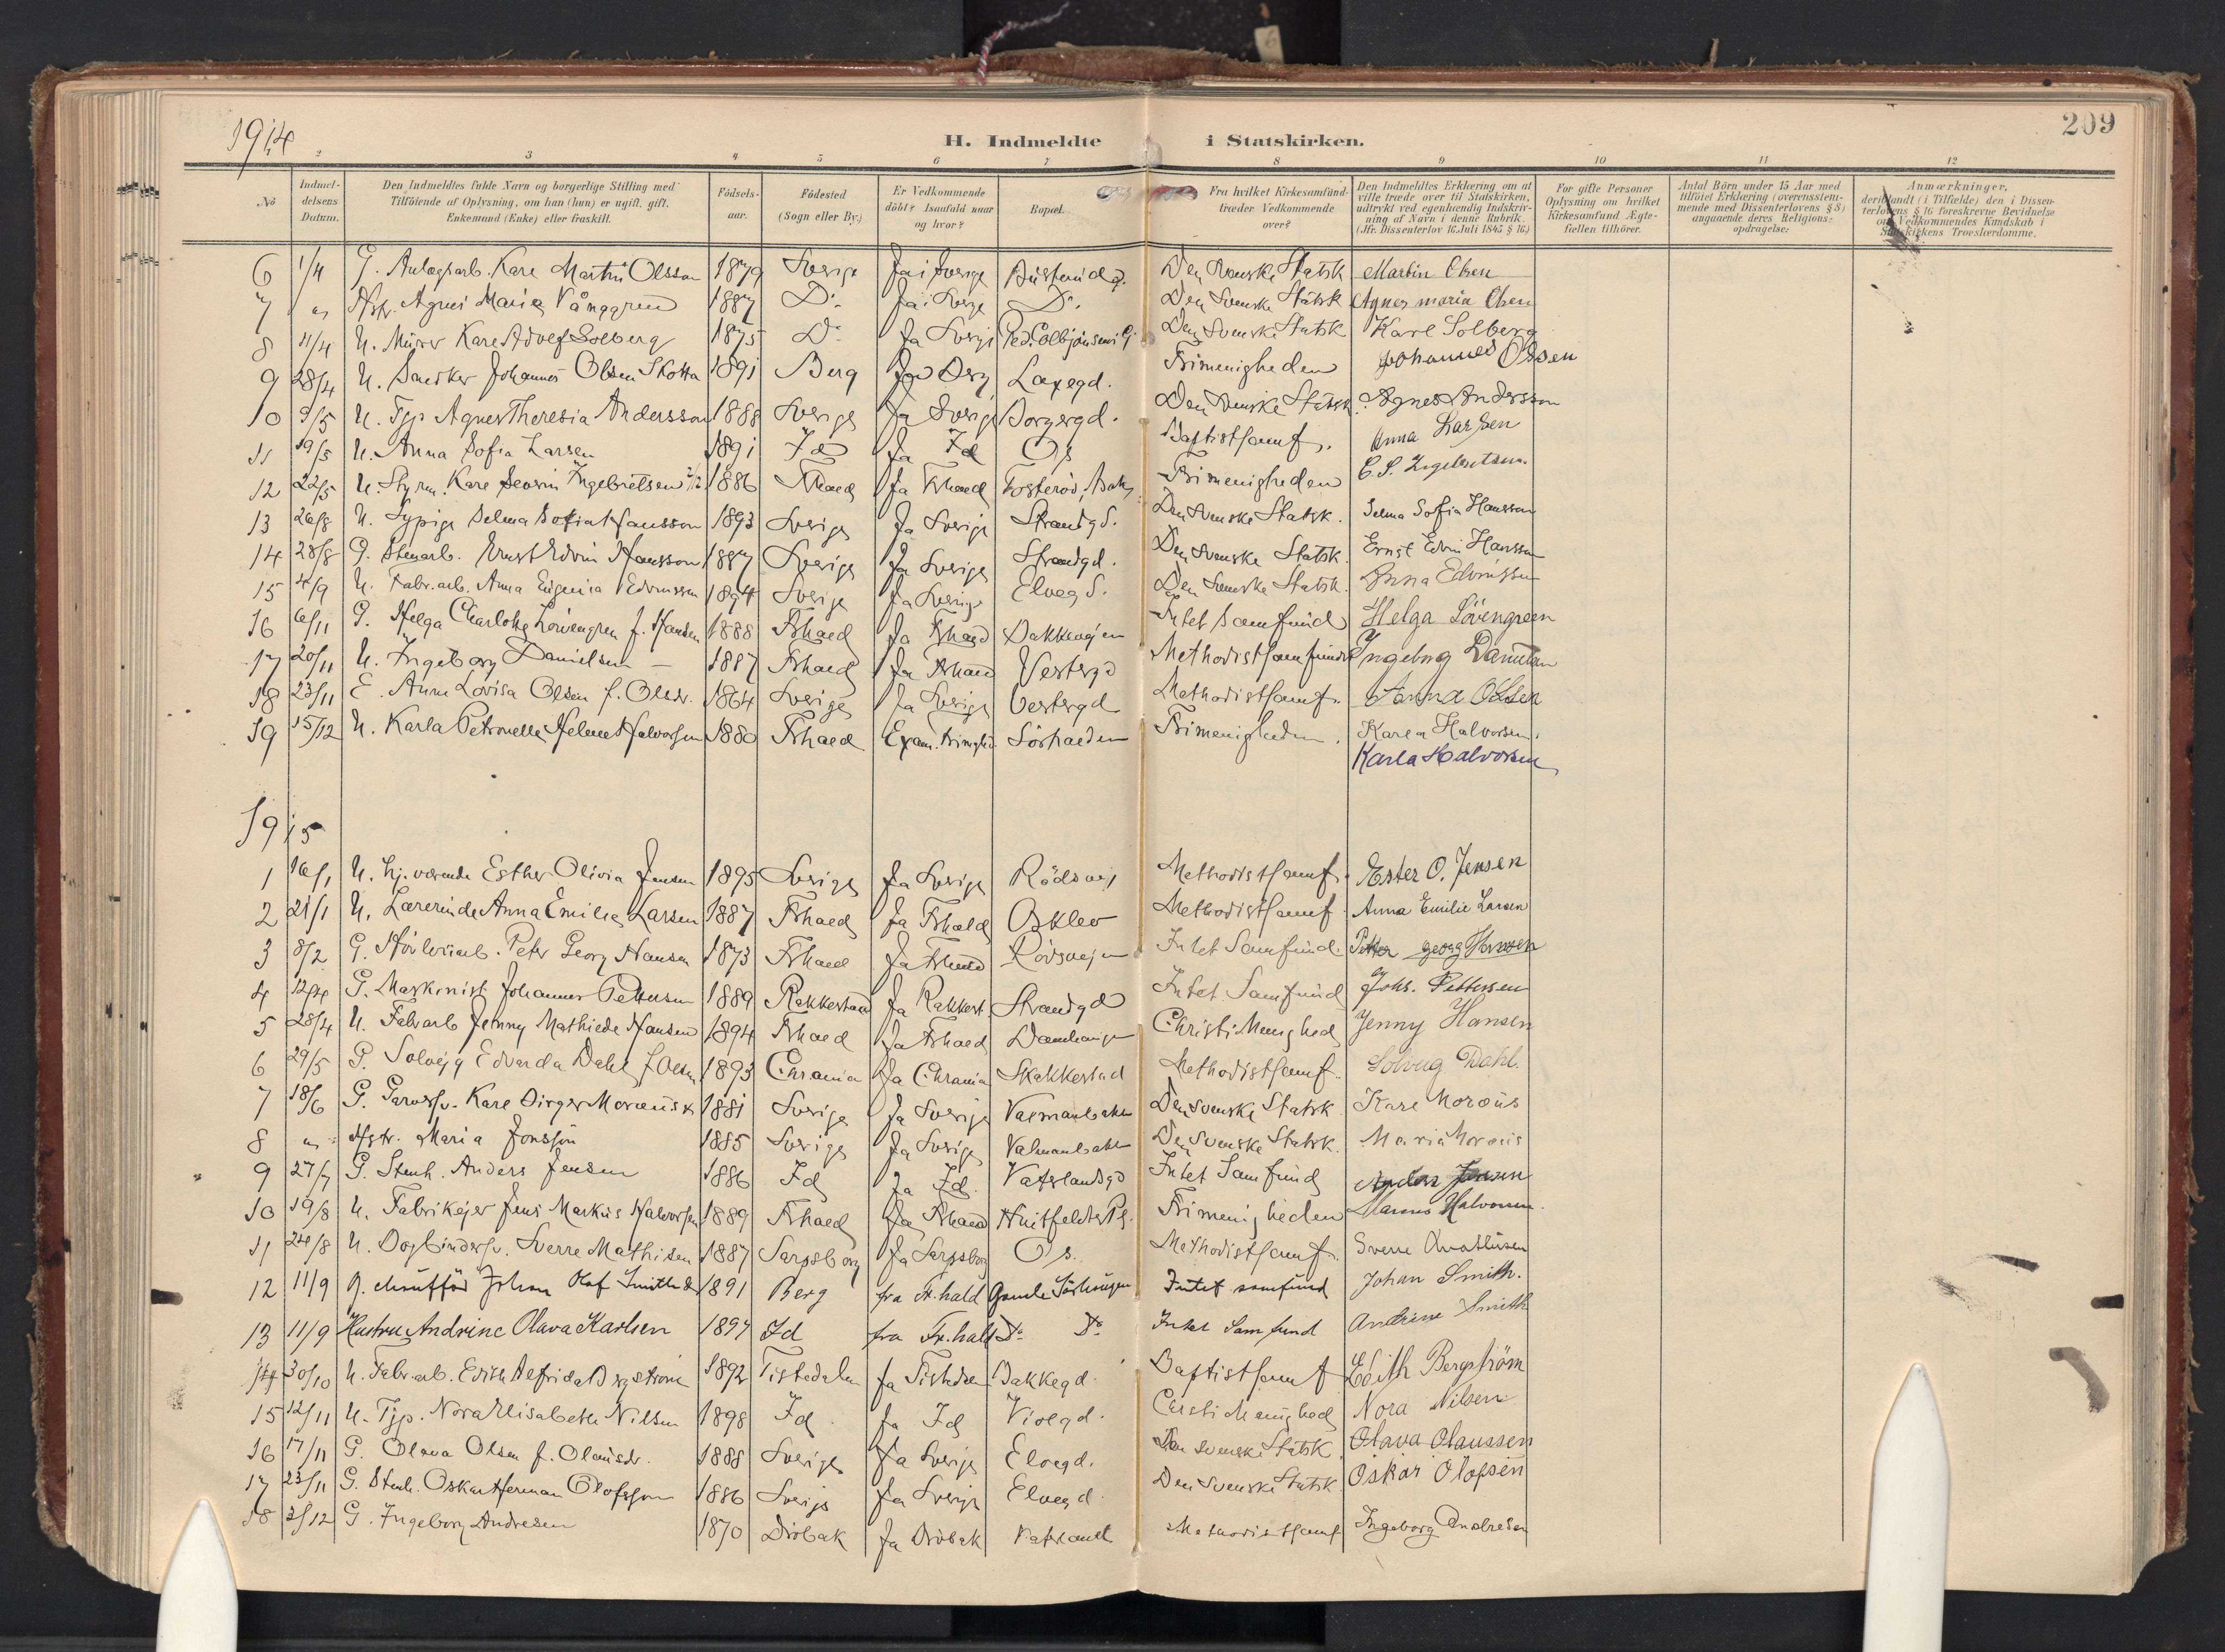 1914
209
H. Indmeldte i Statskirken.
2 3 4 5 6 7 8 9 10 11 12
No
Indmeldelsens Datum.
Den Indmeldtes fulde Navn og borgerlige Stilling med Tilföiende af Oplysning, om han (hun) er ugift, gift, Enkemand (Enke) eller fraskilt.
Födselsaar.
Födested (Sogn eller By.)
Er Vedkommende döbt? Isaafald naar og hvor?
Bopæl.
Fra hvilket Kirkesamfund træder Vedkommende over?
Den Indmeldtes Erklæring om at ville træde over til Statskirken, udtrykt ved egenhændig Indskrivning af Navn i denne Rubrik. (Jfr. Dissenterlov 16 Juli 1845 § 16)
For gifte Personer Oplysning om hvilket Kirkesamfund Ægtefællen tilhörer.
Antal Börn under 15 Aar med tilföiet Erklæring (overensstemmende med Dissenterlovens § 8) angaaende deres Religionsopdragelse:
Anmærkninger,
6 1/4 G. Karl Martin Olsson 1879 Sverige Ja i Sverige Den svenske Statsk Martin Olsen
7 Agnes Maria 1887 Do Ja i Sverge Do. Den Svenske Statsk Agnes maria Olsen
8 11/4 U. Murer Karl Adolf Solberg 1875 Do Ja Sverge Den Svenske Statsk Karl Solberg
9 28/4 U. Snedker Johannes Olsen 1891 Berg Ja Berg Frimenigheden Johannes Olsen
10 9/5 U. Tjp Agnes Theresia Andersson 1888 Sverige Ja Sverige Borgergd. Den svenske Statsk. Agnes Andersson
11 19/5 U. Anna Sofia Larsen 1891 Id Ja Id Os Baptistsamf. Anna Larsen
12 22/5 U. Styrm. Karl Severin Ingebretsen 1886 Frhald Ja Frhald Frimenigheden C. S. Ingebretsen.
13 26/8 U. Sypige Selma Sofia Hansson 1893 Sverige Ja Sverige Strandgd. Den svenske Statsk. Selma Sofia Hansson
14 28/8 G. Stenarb. Ernst Edvin Hansson 1887 Sverige Ja Sverige Strandgd. Den svenske Statsk. Ernst Edvin Hansson
15 4/9 U. Fabr.arb. Anna Eugenia Edvinssen 1894 Sverige Ja Sverige Elvegd. Den Svenske Statsk. Anna Edvinssen
16 6/11 G. Helga Charlotte Lövengren f. Hansen 1888 Frhald Ja Frhald Intet Samfund Helga Lövengreen
17 20/11 U. Ingeborg Danielsen 1887 Frhald Ja Frhald Vestergd Methodistsamfundet Ingeborg Danielsen
18 23/11 E. Anna Lovisa Olsen f. Olsdr. 1864 Sverige Ja Sverige Vestergd Methodistsamf. Anna Olsen
19 15/12 U. Karla Petronelle Helene Halvorsen 1880 Frhald Sörhalden Frimenigheden. Karla Halvorsen.
Karla Halvorsen
1915
1 16/1 U. Esther Olivia Jensen 1895 Sverige Ja Sverige Rödsvej Methodistsamf. Ester O. Jensen
2 21/1 U. Lærerinde Anna Emilie Larsen 1887 Frhald Ja Frhald Osklev Methodistsamf. Anna Emilie Larsen
3 8/2 G. Peter Georg Hansen 1873 Frhald Ja Frhald Rödsvejen Intet Samfund Petter georg Hansen
4 12/4 G. Maskinist Johannes Pettersen 1889 Rakkestad Ja Rakkest. Strandgd Intet Samfund Johs. Pettersen
5 28/4 U. Fabrarb Jenny Mathilde Hansen 1894 Frhald Ja Frhald Christi Menighed Jenny Hansen
6 29/5 G. Solveig Edvarda Dahl f. Olsen 1893 Chrania Ja Chrania Skakkestad Methodistsamf. Solveig Dahl.
7 18/6 G. Garversv. Karl Birger Moræus 1881 Sverige Ja Sverige Den svenske Statsk Karl Moræus
8 Hstr. Maria Jonsson 1885 Sverige Ja Sverige Den Svenske Statsk. Maria Moræus
9 27/7 G. Stenh. Anders Jensen 1886 Id Ja Id. Vaterlandsgd Intet Samfund Anders Jensen
10 19/8 U. Fabrikejer Jens Markus Halvorsen 1889 Frhald Ja Frhald Huitfeldts Pl. Frimenigheden Marius Halvorsen
11 24/8 U. Bogbindersv. Sverre Mathisen 1887 Sarpsborg Ja Sarpsborg Os. Methodistsamf. Sverre Mathisen
12 11/9 G. Johan Olaf Smith 1891 Berg fra Fr.hald Intet samfund Johan Smith.
13 11/9 Hustru Andrine Olava Karlsen 1897 Id fra Fr.hald Do Do Intet Samfund Andrine Smith
14 30/10 U. Fabr.arb. Edith Alfrida Bergström 1892 Tistedalen Ja Tistedalen Bakkegd. Baptistsamf Edith Bergström
15 12/11 U. Tjp. Nora Elisabeth Nilsen 1898 Id. Ja Id Violgd. Christi Menighed Nora Nilsen
16 17/11 G. Olava Olsen f. Olausdr. 1888 Sverige Ja Sverige Elvegd. Den svenske Statsk Olava Olaussen
17 23/11 G. Stenh. Oskar Herman Olofsson 1886 Sverige Ja Sverige Elvegd. Den Svenske Statsk Oskar Olofsen
18 3/12 G. Ingeborg Andresen 1870 Dröbak Ja Dröbak Vaterland Methodistsamf Ingeborg Andresen